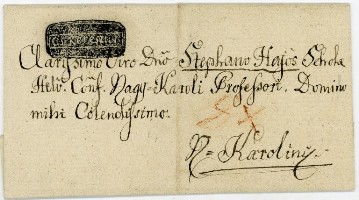 Clarissimo Viro Dno Stephano Hajós Scholae
Helv. Conf. Nagy-Karoli Professori, Domino
mihi Colendissimo.
N-Karolini